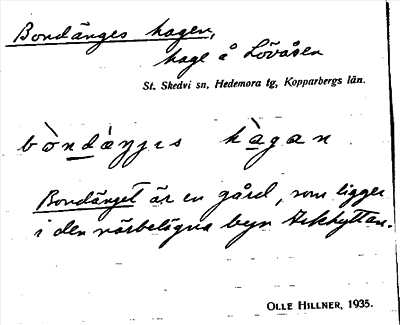 Bondänges hagen,
hage å Lövåsen
St. Skedvi sn, Hedemora tg, Kopparbergs län.
Bondänget är en gård, som ligger
i den närbelägna byn Arkhyttan.
OLLE HILLNER, 1935.